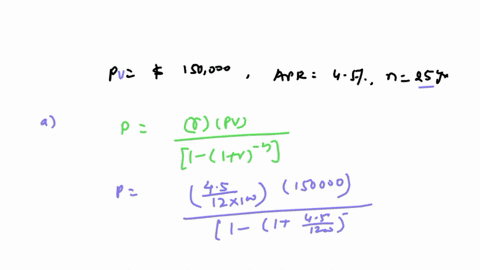 PV= $ 150,000, APR= 4.5%, n=25 yr
a) P = (r)(PV)
[1-(1+r)^-n]
P = (4.5/12×100)(150000)
[1-(1+4.5/1200)^-